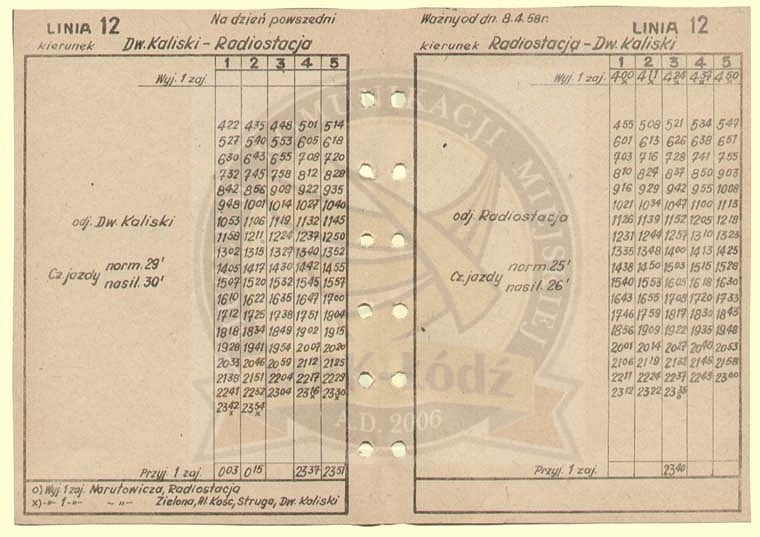 LINIA 12 Na dzień powszedni
kierunek Dw. Kaliski - Radiostacja
1 2 3 4 5
Wyj. 1 zaj.
422 435 448 501 514
527 540 553 605 618
630 643 655 708 720
732 745 758 812 828
842 856 909 922 935
948 1001 1014 1027 1040
odj. Dw. Kaliski 1053 1106 1119 1132 1145
1158 1211 1224 1237 1250
1302 1315 1327 1340 1352
Cz. jazdy norm. 29' 1405 1417 1430 1442 1455
nasil. 30' 1507 1520 1532 1545 1557
1610 1622 1635 1647 1700
1712 1725 1738 1751 1804
1818 1834 1849 1902 1915
1928 1941 1954 2007 2020
2033 2046 2059 2112 2125
2138 2151 2204 2217 2229
2241 2252 2304 2316 x 2330 x
2342 x 2354 x
Przyj. 1 zaj. 003 015 2337 2351
o) Wyj. 1 zaj. Narutowicza, Radiostacja
x) -"- 1 -"- -"- Zielona, Al. Kość, Struga, Dw. Kaliski
Ważny od dn. 8.4.58r. LINIA 12
kierunek Radiostacja - Dw. Kaliski
1 2 3 4 5
Wyj. 1 zaj. 400 x 411 x 424 x 437 x 450 x
455 508 521 534 547
601 613 626 638 651
703 716 728 741 755
810 824 837 850 903
916 929 942 955 1008
1021 1034 1047 1100 1113
odj. Radiostacja 1126 1139 1152 1205 1218
1231 1244 1257 1310 1323
1335 1348 1400 1413 1425
Cz. jazdy norm. 25' 1438 1450 1503 1515 1528
nasil. 26' 1540 1553 1605 1618 1630
1643 1655 1708 1720 1733
1746 1759 1817 1830 1843
1856 1909 1922 1935 1948
2001 2014 2027 2040 2053
2106 2119 2132 2145 2158
2211 2224 2237 2249 2300
2312 2322 2335 o
Przyj. 1 zaj. 2340
KOMUNIKACJI MIEJSKIEJ
Łódź
A.D. 2006